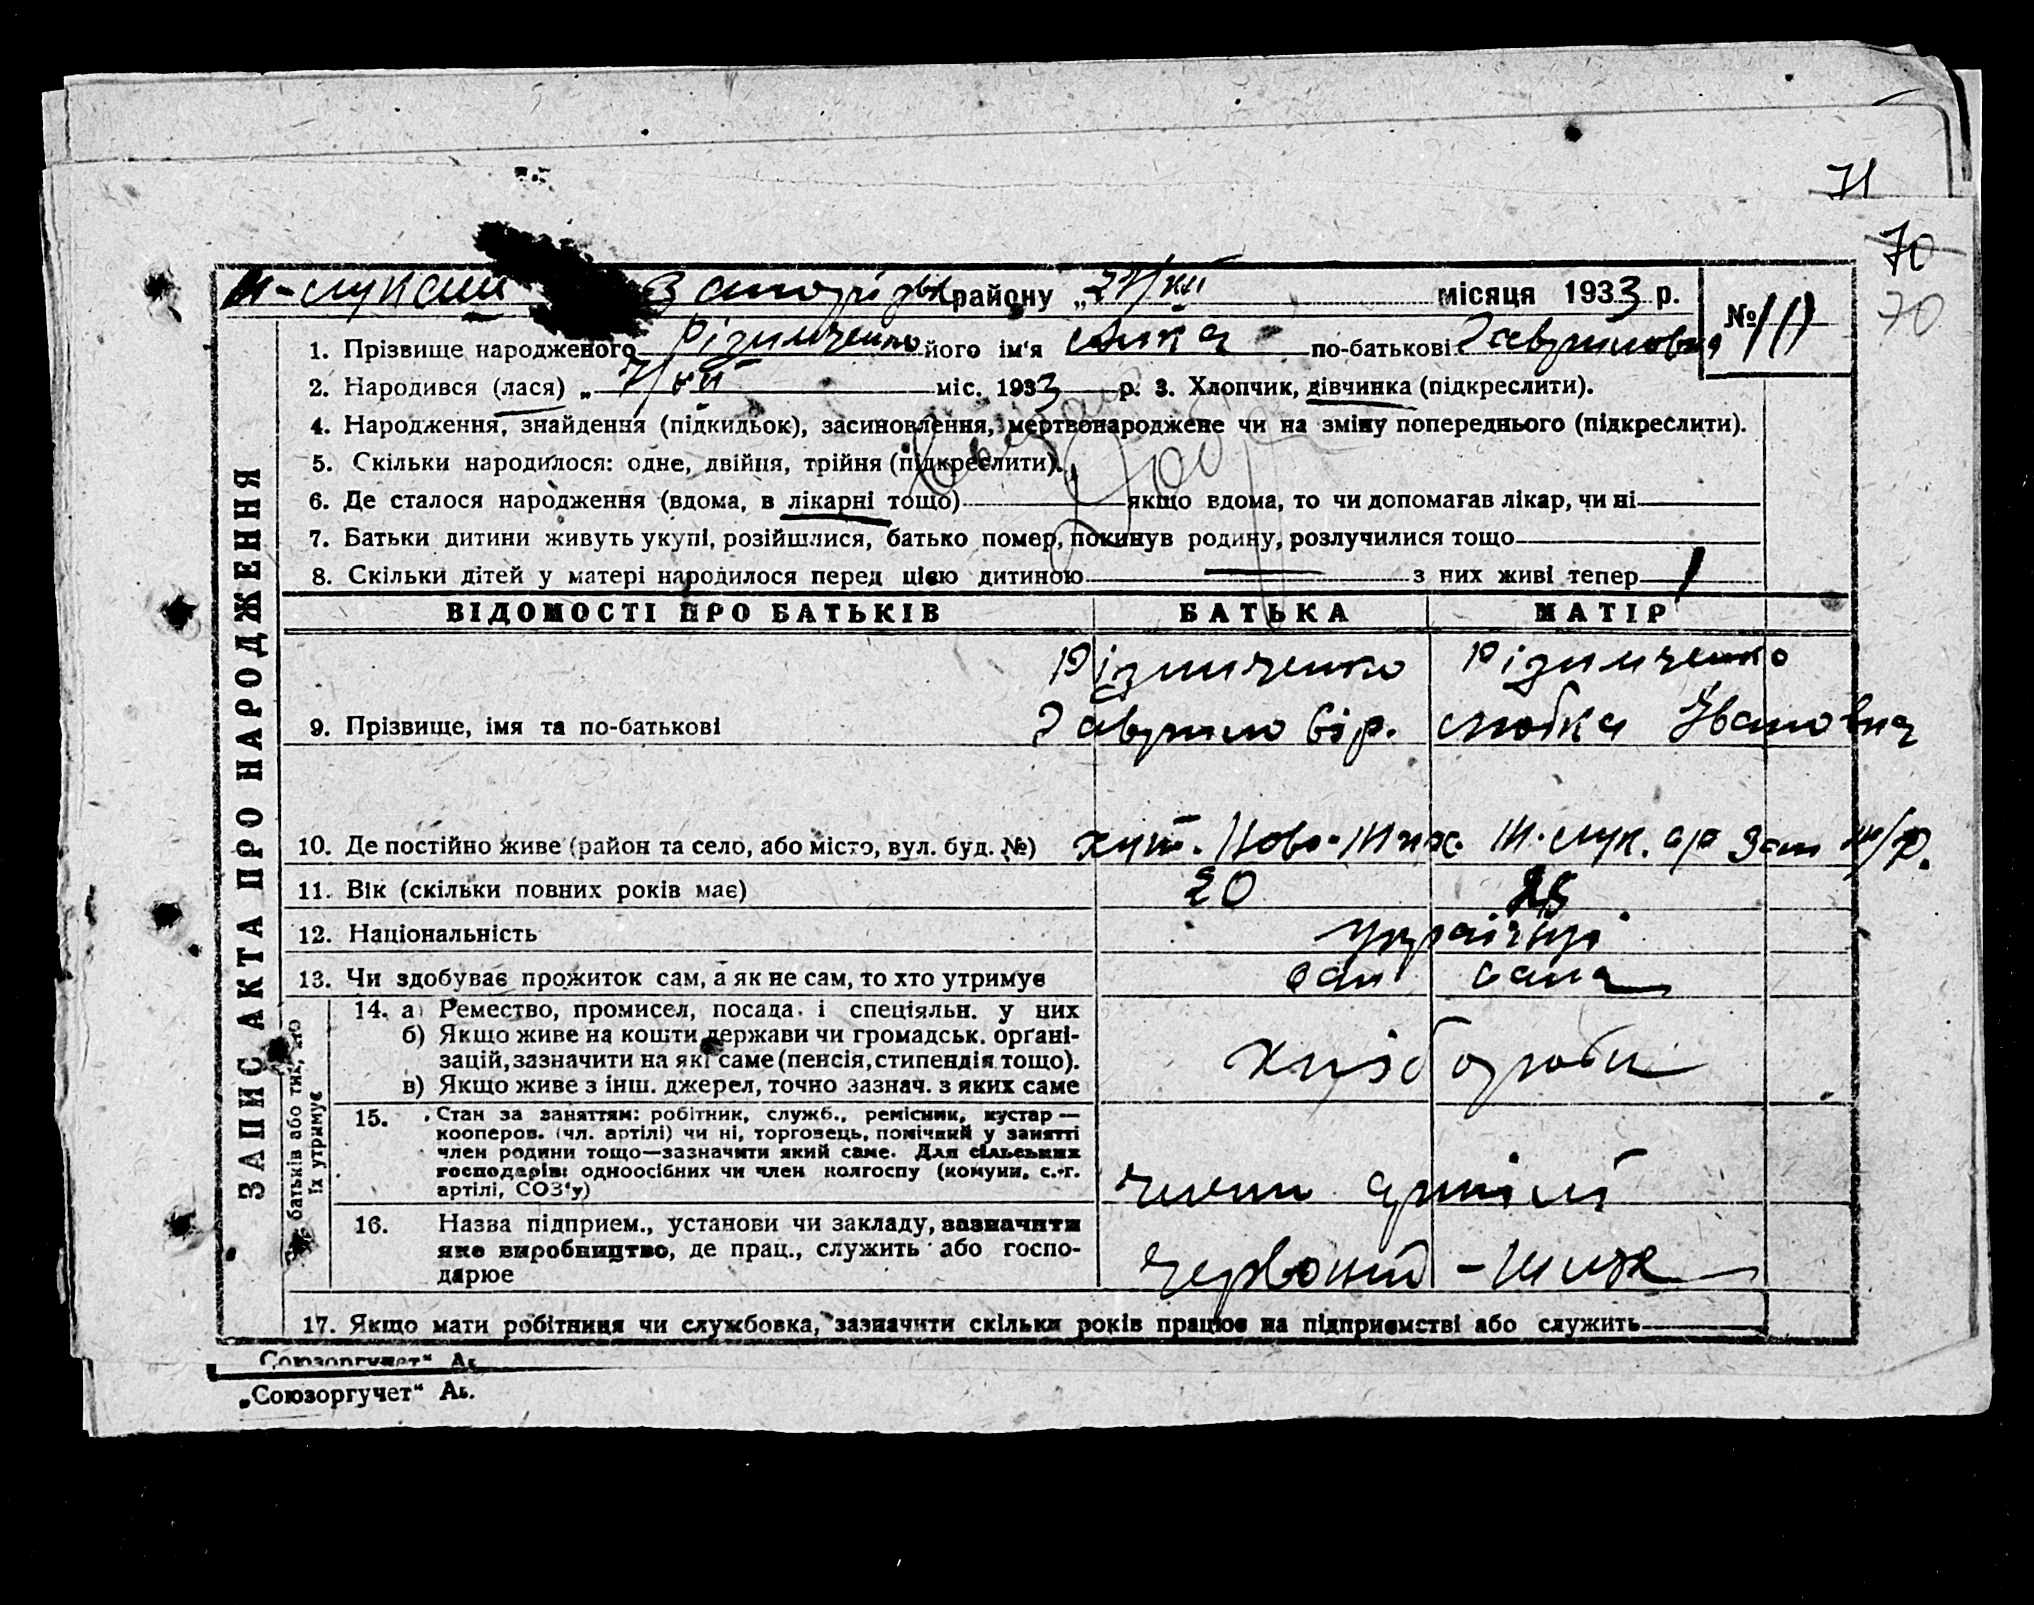 71
70
70
М-Лукаш Запорізьк району „27/XII місяця 1933 р.
№ 111
1. Прізвище народженого Різниченко його ім'я по-батькові Гавриловна
2. Народився (лася) „ 7/XII міс. 1933 р. 3. Хлопчик, дівчинка (підкреслити).
4. Народження, знайдення (підкидьок), засиновлення, мертвонароджене чи на зміну попереднього (підкреслити).
5. Скільки народилося: одне, двійня, трійня (підкреслити).
6. Де сталося народження (вдома, в лікарні тощо) якщо вдома, то чи допомагав лікар, чи ні
7. Батьки дитини живуть укупі, розійшлися, батько помер, покинув родину, розлучилися тощо
8. Скільки дітей у матері народилося перед цією дитиною — з них живі тепер 1
ЗАПИС АКТА ПРО НАРОДЖЕННЯ
ВІДОМОСТІ ПРО БАТЬКІВ БАТЬКА МАТІР
Різниченко Різниченко
9. Прізвище, імя та по-батькові Гаврило Любка Івановна
10. Де постійно живе (район та село, або місто, вул. буд. №) хут. Ново-Мих. М-Лук. с/р Зап м/р.
11. Вік (скільки повних років має) 20
12. Національність українці
13. Чи здобуває прожиток сам, а як не сам, то хто утримує сам сама
батьків або тих, хто
їх утримує
14. а) Ремество, промисел, посада і спеціяльн. у них
б) Якщо живе на кошти держави чи громадськ. органі-
зацій, зазначити на які саме (пенсія, стипендія тощо).
в) Якщо живе з інш. джерел, точно зазнач. з яких саме
хлібороби
15. Стан за заняттям: робітник, служб., ремісник, кустар —
кооперов. (чл. артілі) чи ні, торговець, помічний у занятті
член родини тощо—зазначити який саме. Для сільських
господарів: одноосібних чи член колгоспу (комуни, с.-г.
артілі, СОЗ'у)
члени артілі
16. Назва підприєм., установи чи закладу, зазначити
яке виробництво, де прац., служить або госпо-
дарює
Червоний - шлях
17. Якщо мати робітниця чи службовка, зазначити скільки років працює на підприємстві або служить
Союзоргучет“
„Союзоргучет“